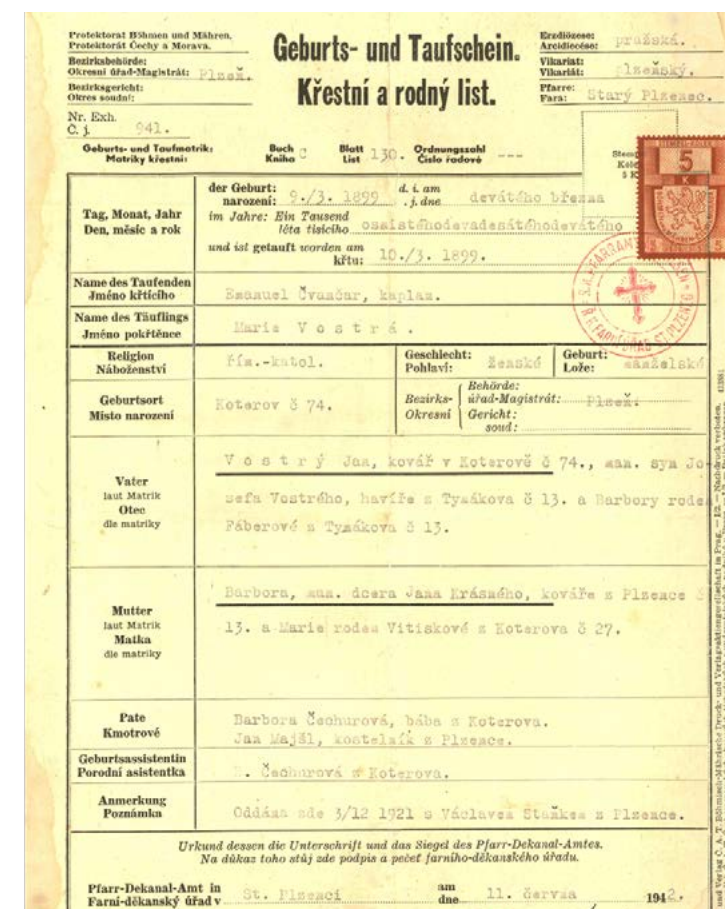 Protektorat Böhmen und Mähren.
Protektorát Čechy a Morava.
Bezirksbehörde:
Okresní úřad-Magistrát: Plzeň.
Bezirksgericht:
Okres soudní:
Nr. Exh.
Č. j. 941.
Geburts- und Taufschein.
Křestní a rodný list.
Erzdiözese:
Arcidiecése: pražská.
Vikariat:
Vikariát: plzeňský.
Pfarre:
Fara: Starý Plzenec.
Geburts- und Taufmatrik:
Matriky křestní:
Buch
Kniha C
Blatt
List 130.
Ordnungszahl
Číslo řadové ---
5
Tag, Monat, Jahr
Den, měsíc a rok
der Geburt:
narození: 9./3. 1899
d. i. am
t. j. dne devátého března
im Jahre: Ein Tausend
léta tisícího osmistéhodevadesátéhodevátého
und ist getauft worden am
křtu: 10./3. 1899.
Name des Taufenden
Jméno křtícího
Emanuel Čvančar, kaplan.
Name des Täuflings
Jméno pokřtěnce
Marie Vostrá.
Religion
Náboženství
řím.-katol.
Geschlecht:
Pohlaví: ženské
Geburt:
Lože: manželské
Geburtsort
Místo narození
Koterov č 74.
Bezirks-
Okresní
Behörde:
úřad-Magistrát: Plzeň.
Gericht:
soud:
Vater
laut Matrik
Otec
dle matriky
Vostrý Jan, kovář v Koterově č 74., man. syn Jo
sefa Vostrého, havíře z Tymákova č 13. a Barbory roden
Fáberové z Tymákova č 13.
Mutter
laut Matrik
Matka
dle matriky
Barbora, man. dcera Jana Krásného, kováře z Plzence č
13. a Marie roden Vitiskové z Koterova č 27.
Pate
Kmotrové
Barbora Čechurová, bába z Koterova.
Jan Majšl, kostelník z Plzence.
Geburtsassistentin
Porodní asistentka
B. Čechurová z Koterova.
Anmerkung
Poznámka
Oddána zde 3/12 1921 s Václavem Staňkem z Plzence.
Urkund dessen die Unterschrift und das Siegel des Pfarr-Dekanal-Amtes.
Na důkaz toho stůj zde podpis a pečeť farního-děkanského úřadu.
Pfarr-Dekanal-Amt in
Farní-děkanský úřad v St. Plzenci
am
dne 11. června 1942.